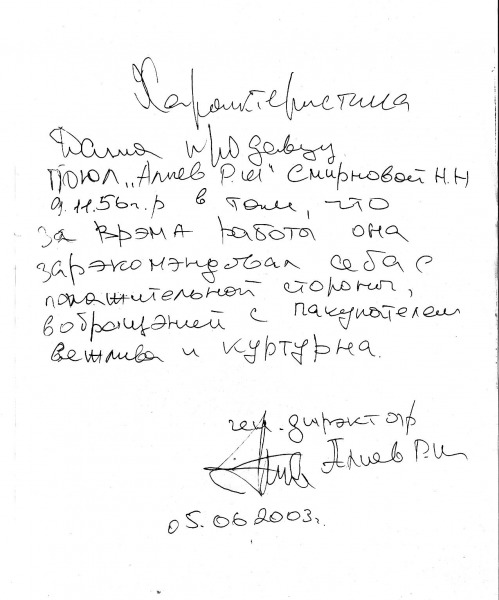 Характеристика
Дана продавцу
ПОЮЛ „Алиев Р.И" Смирновой Н.Н
9.11.56г.р в том, что
за врэма работа она
зарэкомэндовал себа с
полажительной стороны,
в обращэней с пакупателем
вежлива и куртурна.
ген. дирэктор
Алиев Р.И
05.06 2003г.